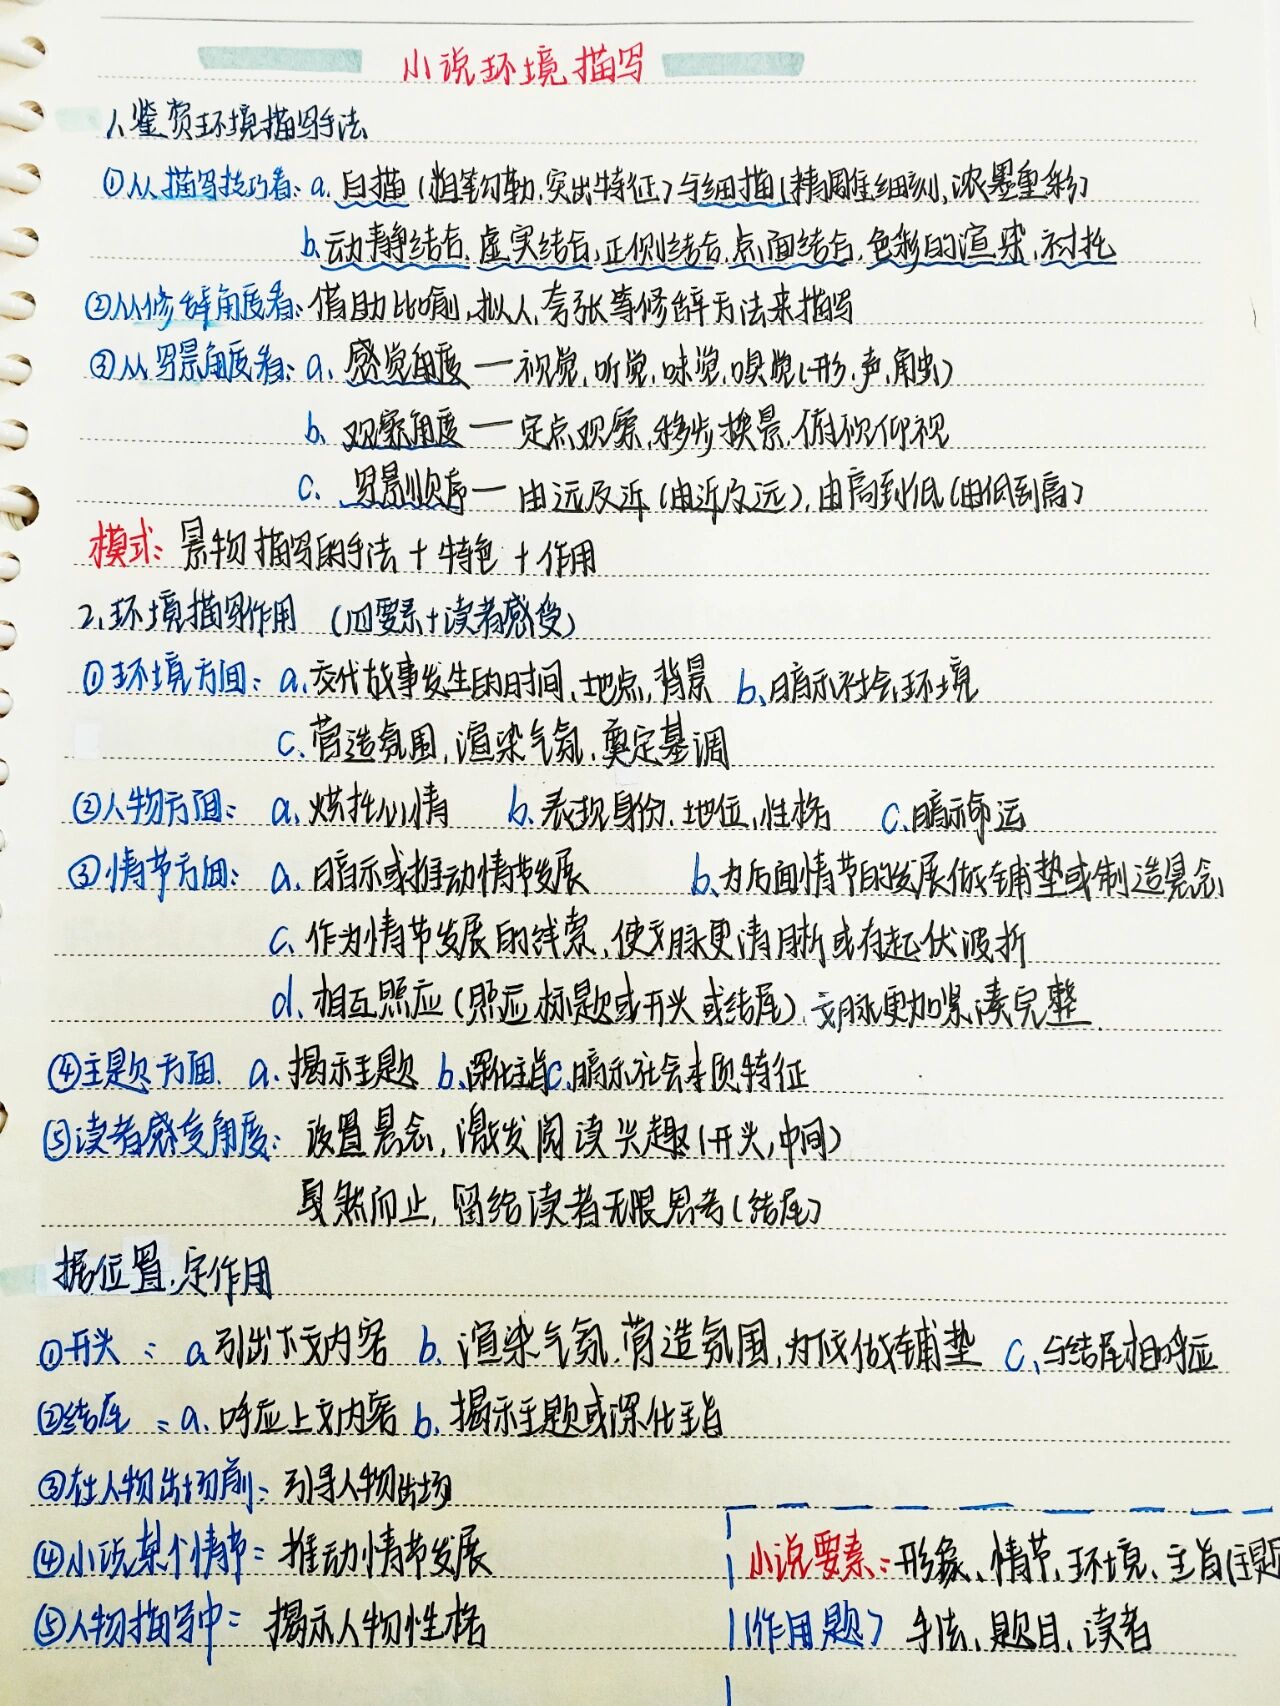 小说环境描写
1、鉴赏环境描写手法
①从描写技巧看:a.白描(粗笔勾勒,突出特征)与细描(精雕细刻,浓墨重彩)
b.动静结合,虚实结合,正侧结合,点面结合,色彩的渲染,衬托
②从修辞角度看:借助比喻,拟人,夸张等修辞方法来描写
③从写景角度看:a、感觉角度—视觉,听觉,味觉,嗅觉(形,声,触)
b、观察角度—定点观察,移步换景,俯视仰视
c、写景顺序—由远及近(由近及远),由高到低(由低到高)
模式:景物描写的手法+特色+作用
2、环境描写作用 (四要素+读者感受)
①环境方面:a、交代故事发生的时间、地点,背景 b、暗示社会环境
c、营造氛围,渲染气氛,奠定基调
②人物方面:a、烘托心情 b、表现身份、地位,性格 c、暗示命运
③情节方面:a、暗示或推动情节发展 b、为后面情节的发展做铺垫或制造悬念
c、作为情节发展的线索,使文脉更清晰或有起伏波折
d、相互照应(照应标题或开头或结尾),文脉更加紧凑完整
④主题方面 a、揭示主题 b、深化主旨 c、暗示社会本质特征
⑤读者感受角度:设置悬念,激发阅读兴趣(开头,中间)
戛然而止,留给读者无限思考(结尾)
据位置,定作用
①开头:a、引出下文内容 b、渲染气氛,营造氛围,为下文做铺垫 c、与结尾相呼应
②结尾:a、呼应上文内容 b、揭示主题或深化主旨
③在人物出场前:引导人物出场
④小说某个情节:推动情节发展
⑤人物描写中:揭示人物性格
小说要素:形象、情节、环境、主旨(主题
(作用题) 手法、题目、读者